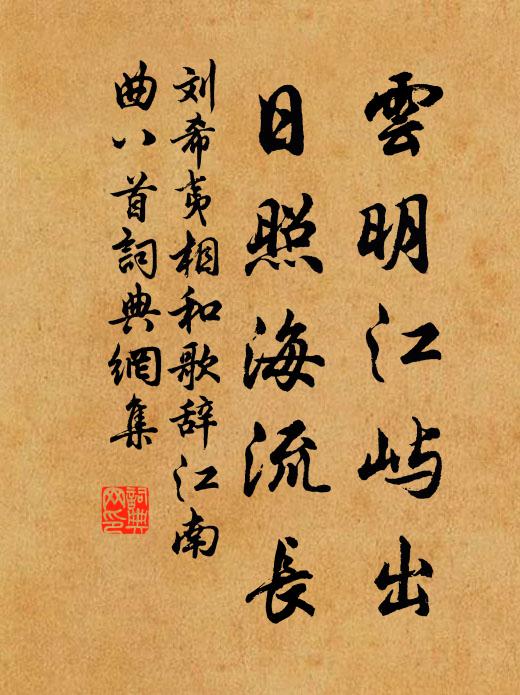 雲明江屿出
日照海流長
刘希夷相和歌辞江南
曲八首詞典網集
詞典
网印